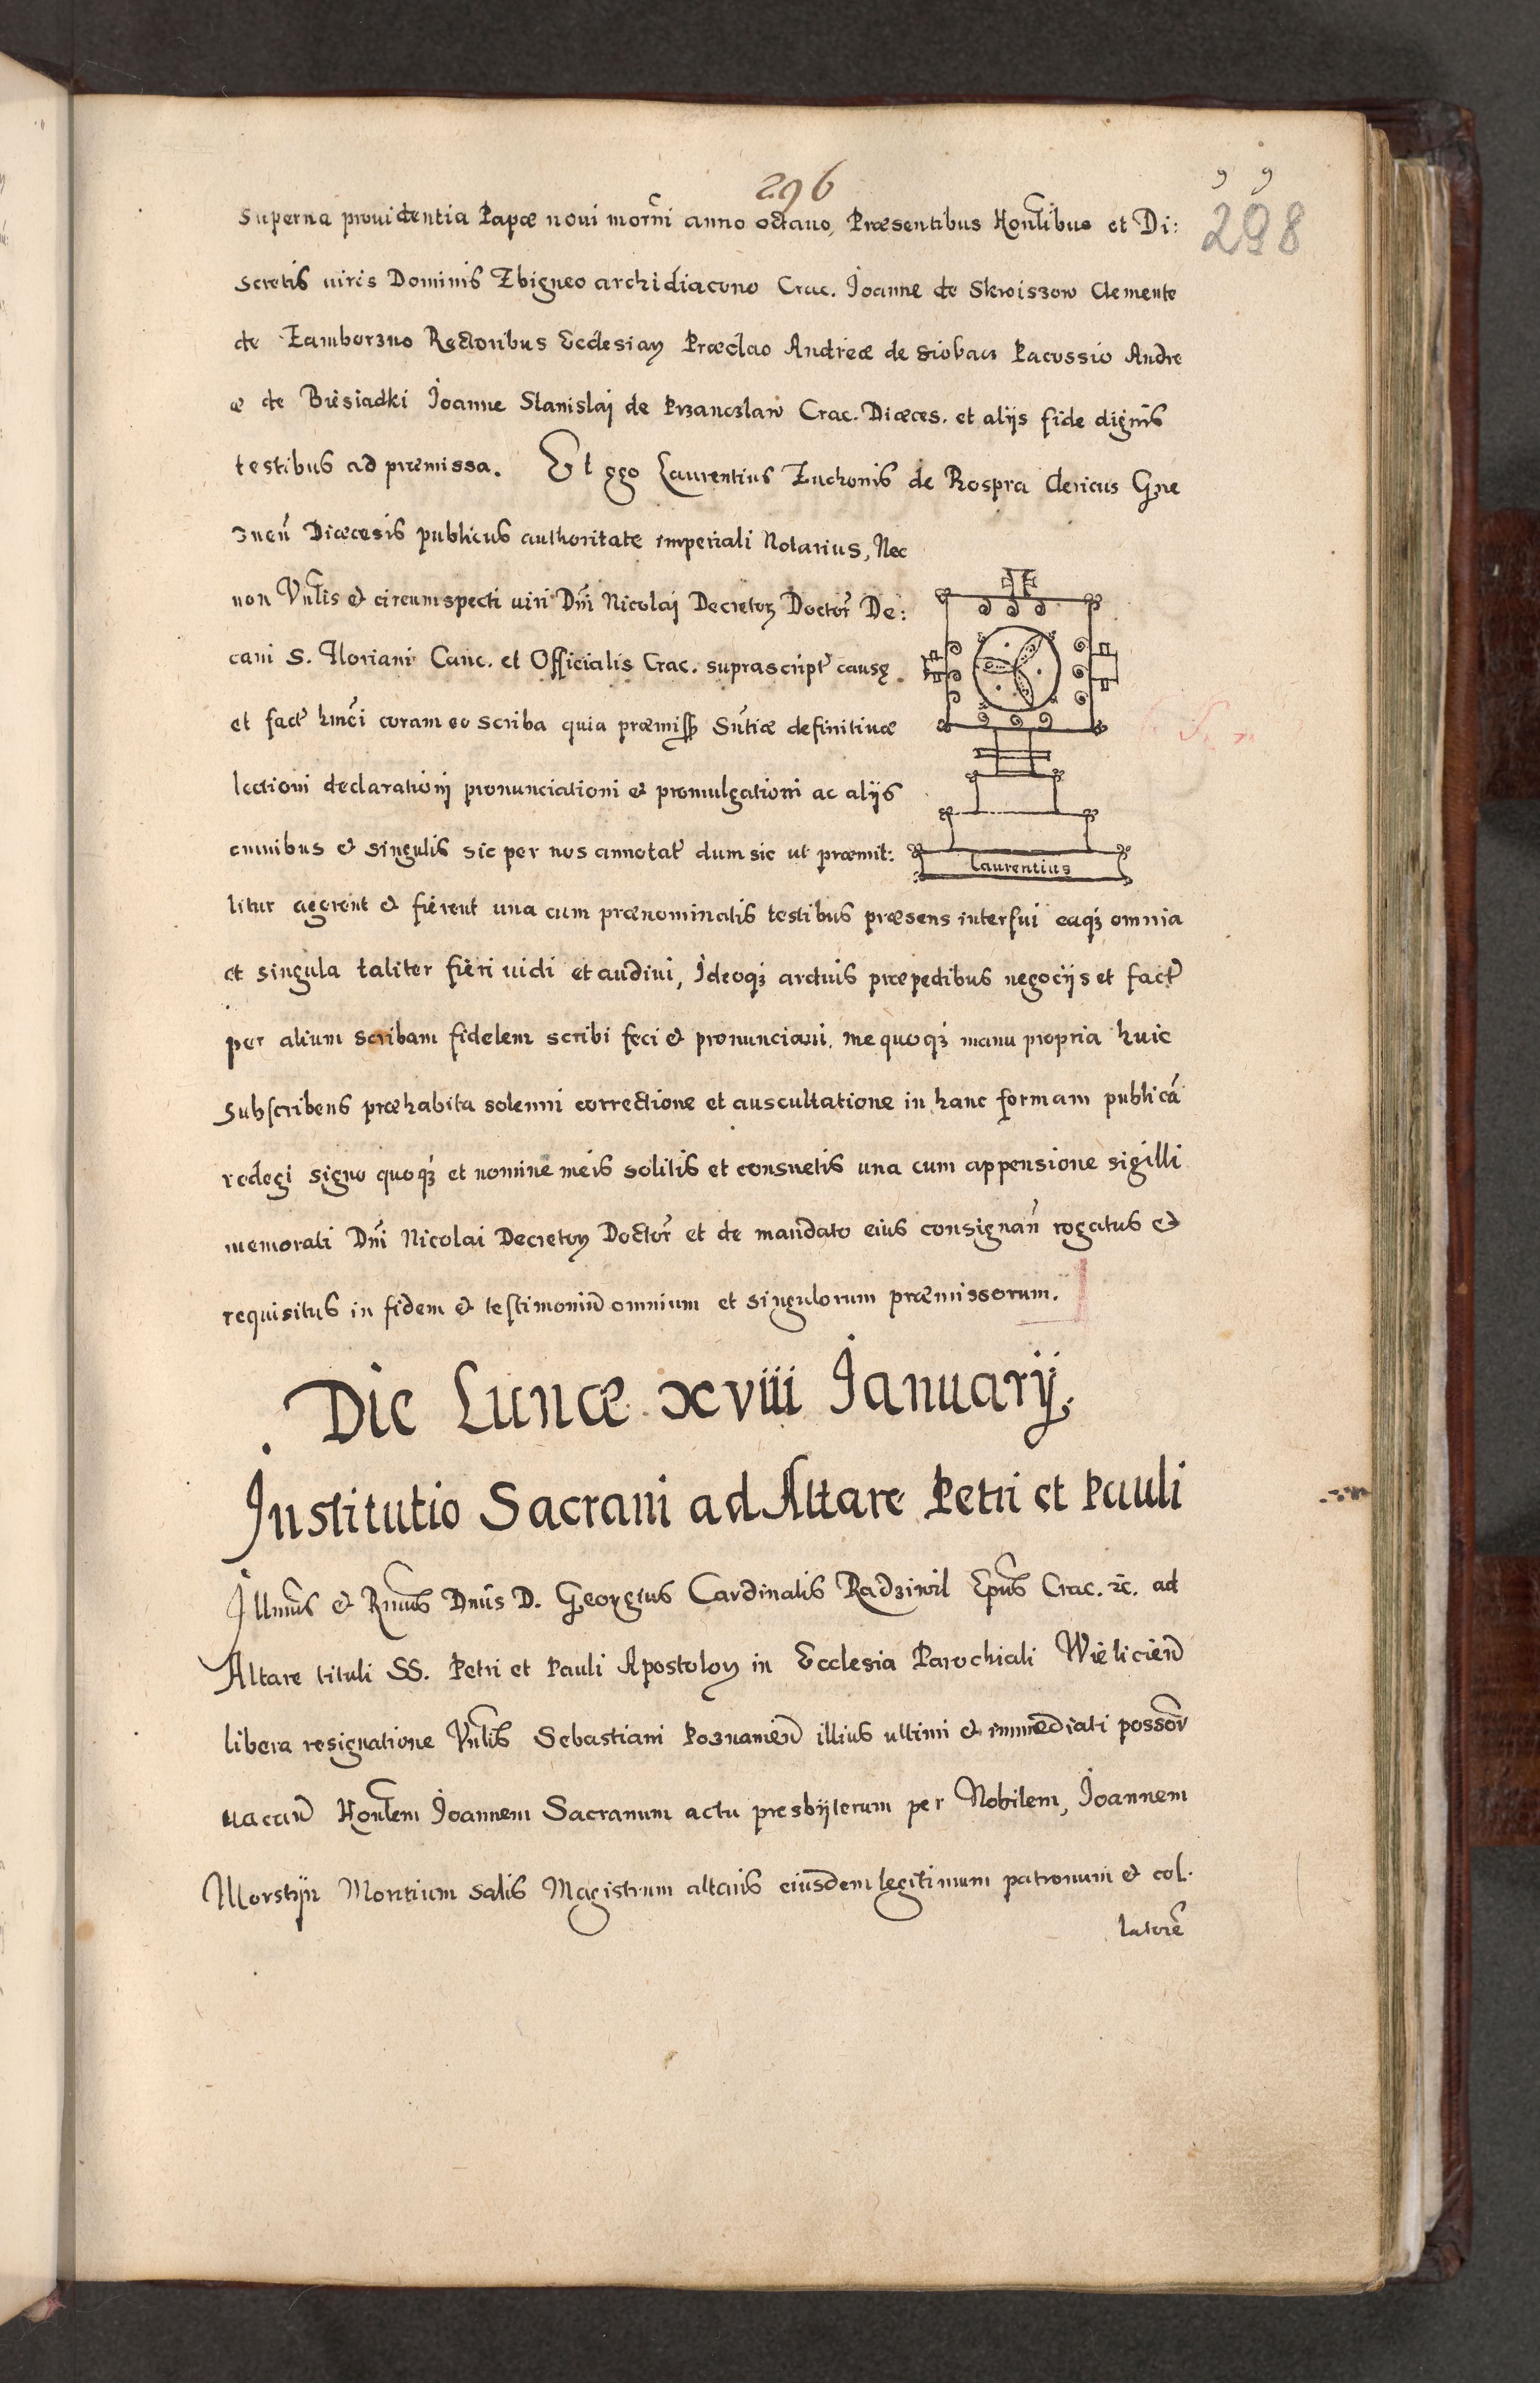 296
298
Superna prouidentia Papæ noui morñi anno octauo, Præsentibus Honlibus et Di:
scretis uiris Dominis Zbigneo archidiacono Crac. Joanne de Skrziszow Clemente
de Zamborzno Rectoribus Ecclesiaꝝ Præclao Andreæ de Andre
æ de Biesiadki Joanne Stanislaj de Przanczlaw Crac. Diæces. et alijs fide dignis
testibus ad præmissa. Et ego Laurentius Zuchonis de Rospra clericus Gne
zneñ Diæcesis publicus authoritate imperiali Notarius, Nec
non Vnlis & circumspecti uiri Dñi Nicolaj Decretoꝝ Doctor̃ De:
cani S. Floriani Canc. et Officialis Crac. suprascript̃ causę
et fact̃ hm̃oi coram eo scriba quia præmiss̃ Sñtiæ definitiuæ
lectioni declarationj pronunciationi & promulgationi ac alijs
omnibus & singulis sic per nos annotat̃ dum sic ut præmit:
titur agerent & fierent una cum prænominatis testibus præsens interfui eaqꝫ omnia
et singula taliter fieri uidi et audiui, Ideoqꝫ arduis præpedibus negocijs et fact̃
per alium scribam fidelem scribi feci & pronunciaui. me quoqꝫ manu propria huic
subscribens præhabita solenni correctione et auscultatione in hanc formam publicã
redegi signo quoqꝫ et nomine meis solitis et consuetis una cum appensione sigilli
memorati Dñi Nicolai Decretoꝝ Doctor̃ et de mandato eius consignañ rogatus &
requisitus in fidem & testimoniũ omnium et singulorum præmissorum.
Laurentius
Die Lunæ xviii Januarij.
Institutio Sacrani ad Altare Petri et Pauli
Illmũs & Rmũs Dnũs D. Georgius Cardinalis Radziwil Epũs Crac. ꝛc. ad
Altare tituli SS. Petri et Pauli Apostoloꝝ in Ecclesia Parochiali Wielicieñ
libera resignatione Vnlis Sebastiani Poznanieñ illius ultimi & immediati possor̃
uacañ Honlem Joannem Sacranum actu presbijterum per Nobilem, Joannem
Morstijn Montium salis Magistrum altaris eiusdem legitimum patronum & col.
latorẽ